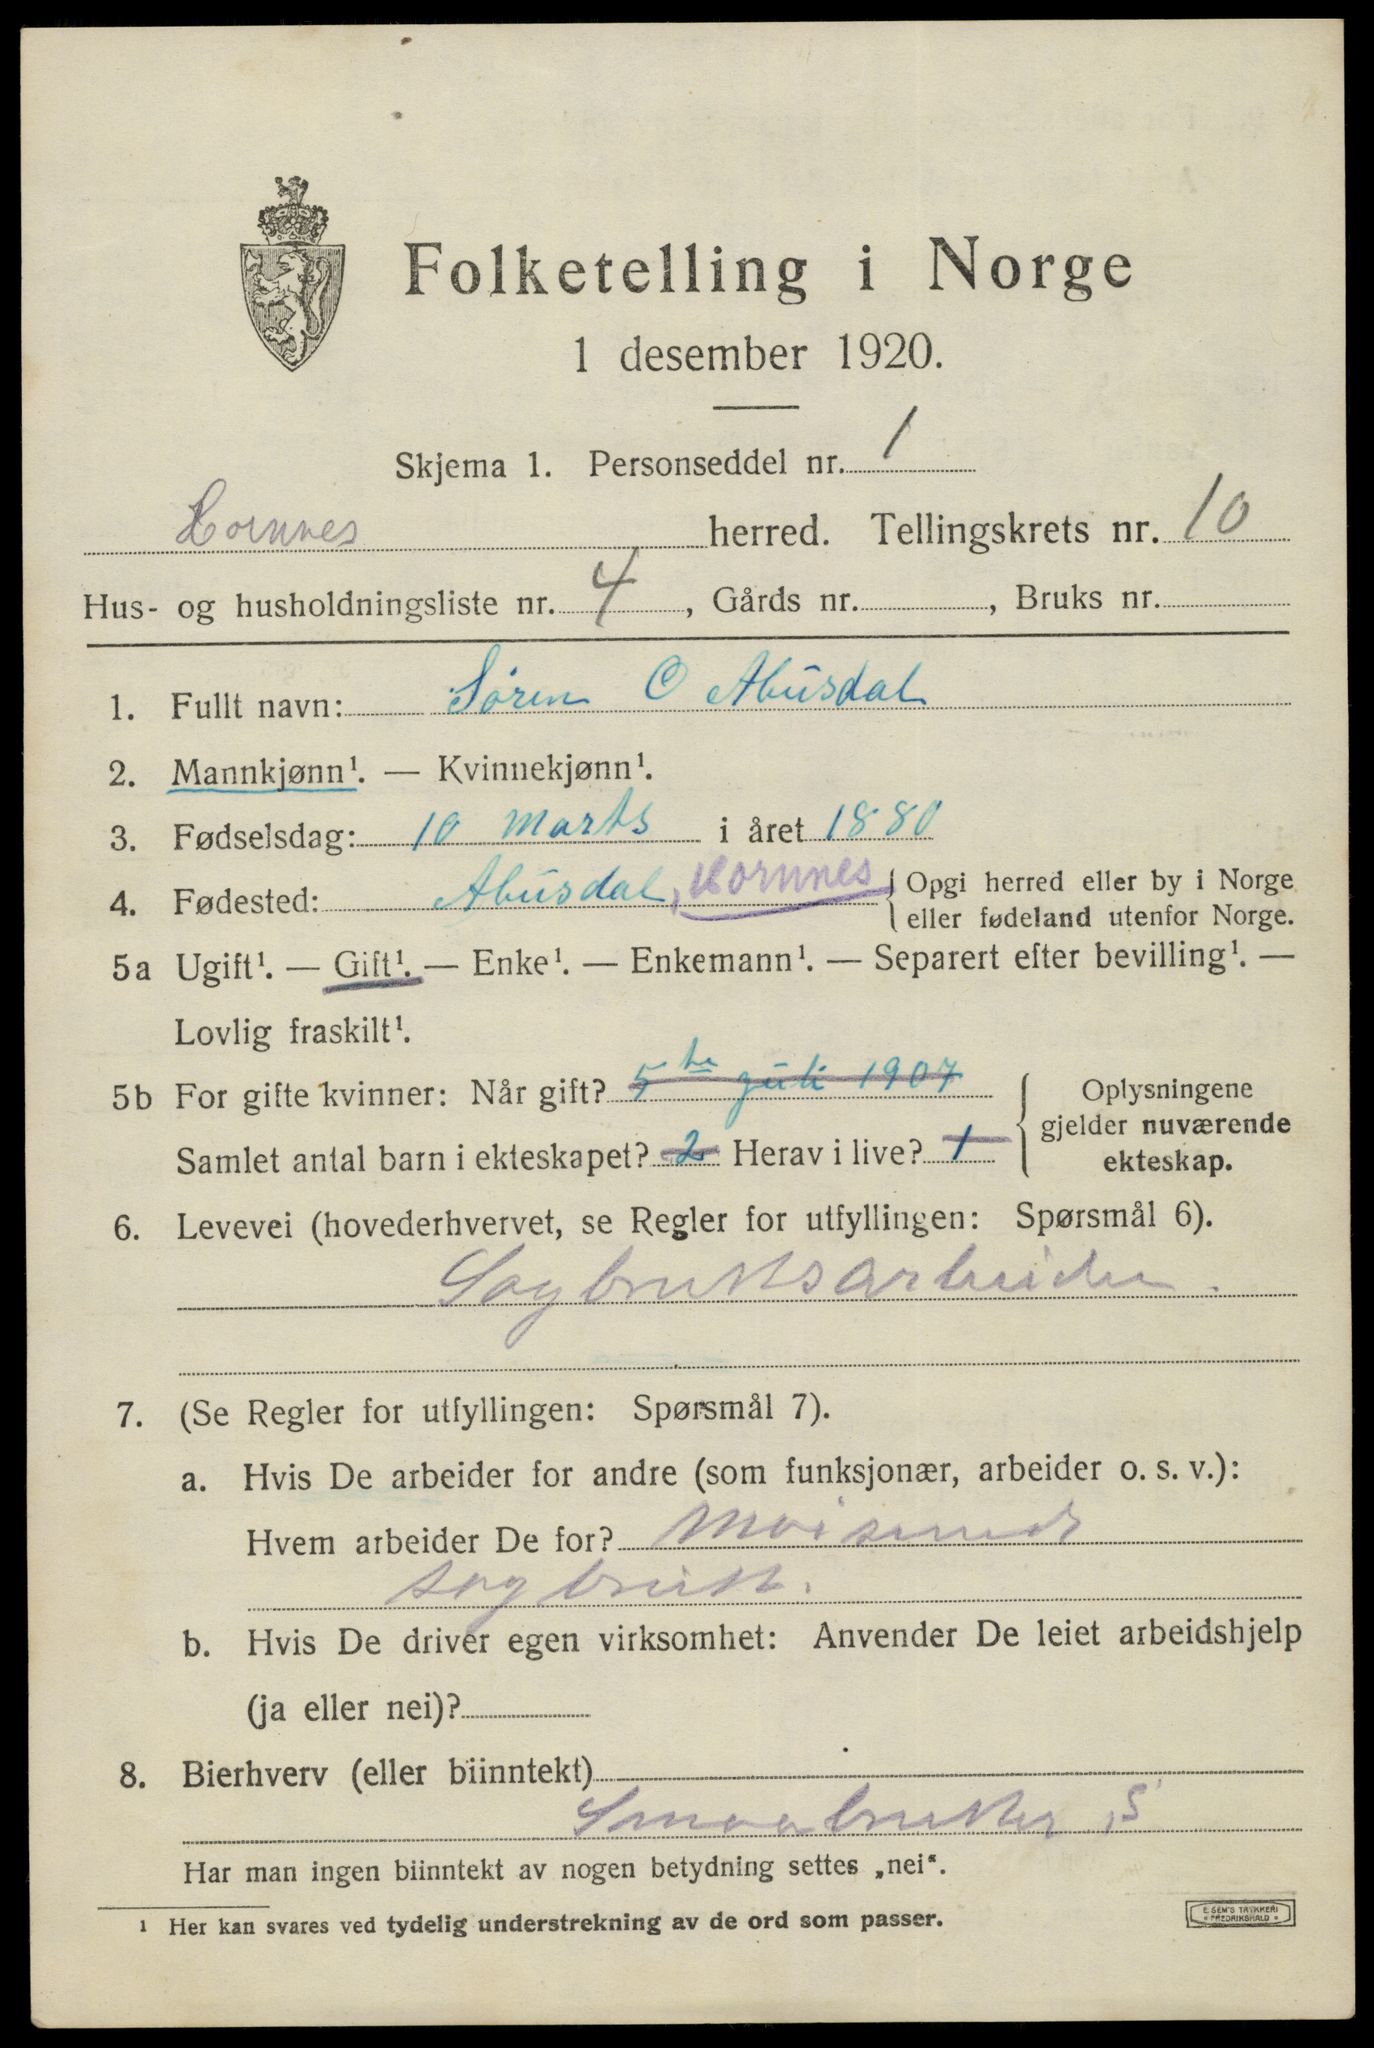 Folketelling i Norge
1 desember 1920.
Skjema 1. Personseddel nr. 1
Hornnes herred. Tellingskrets nr. 10
Hus- og husholdningsliste nr. 4, Gårds nr. , Bruks nr.
1. Fullt navn: Søren O Abusdal
2. Mannkjønn¹. — Kvinnekjønn¹.
3. Fødselsdag: 10 Marts i året 1880
4. Fødested: Abusdal, Hornnes { Opgi herred eller by i Norge
eller fødeland utenfor Norge.
5a Ugift¹. — Gift¹. — Enke¹. — Enkemann¹. — Separert efter bevilling¹. —
Lovlig fraskilt¹.
5b For gifte kvinner: Når gift? 5te juli 1907 { Oplysningene
gjelder nuværende
Samlet antal barn i ekteskapet? 2 Herav i live? 1
ekteskap.
6. Levevei (hovederhvervet, se Regler for utfyllingen: Spørsmål 6).
Sagbruksarbeider.
7. (Se Regler for utfyllingen: Spørsmål 7).
a. Hvis De arbeider for andre (som funksjonær, arbeider o. s. v.):
Hvem arbeider De for? Moisund
sagbruk.
b. Hvis De driver egen virksomhet: Anvender De leiet arbeidshjelp
(ja eller nei)?
8. Bierhverv (eller biinntekt)
Smaabruker, S
Har man ingen biinntekt av nogen betydning settes „nei“.
¹ Her kan svares ved tydelig understrekning av de ord som passer.
E. SEM'S TRYKKERI
FREDRIKSHALD